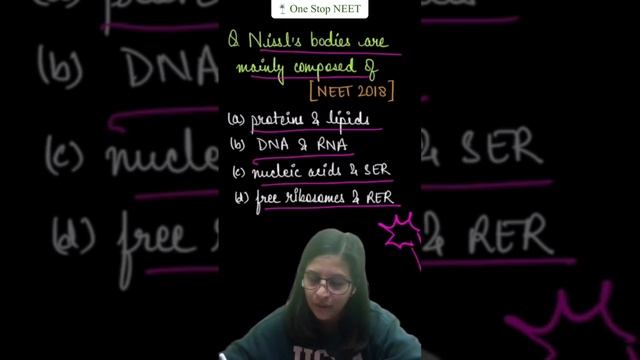 One Stop NEET
Q Nissl's bodies are
mainly composed of
[NEET 2018]
(a) proteins & lipids
(b) DNA & RNA
(c) nucleic acids & SER
(d) free ribosomes & RER
(b) DNA
(c) nucleic
& SER
(d) free
& RER